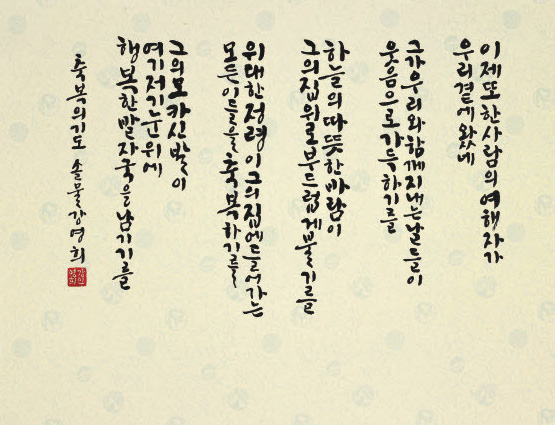 이제 또 한 사람의 여행자가
우리 곁에 왔네
그가 우리와 함께 지내는 날들이
웃음으로 가득하기를
하늘의 따뜻한 바람이
그의 집 위로 부드럽게 불기를
위대한 정령이 그의 집에 들어가는
모든 이들을 축복하기를
그의 모카신 발이
여기저기 눈 위에
행복한 발자국을 남기기를
축복의 기도 솔물 강명희